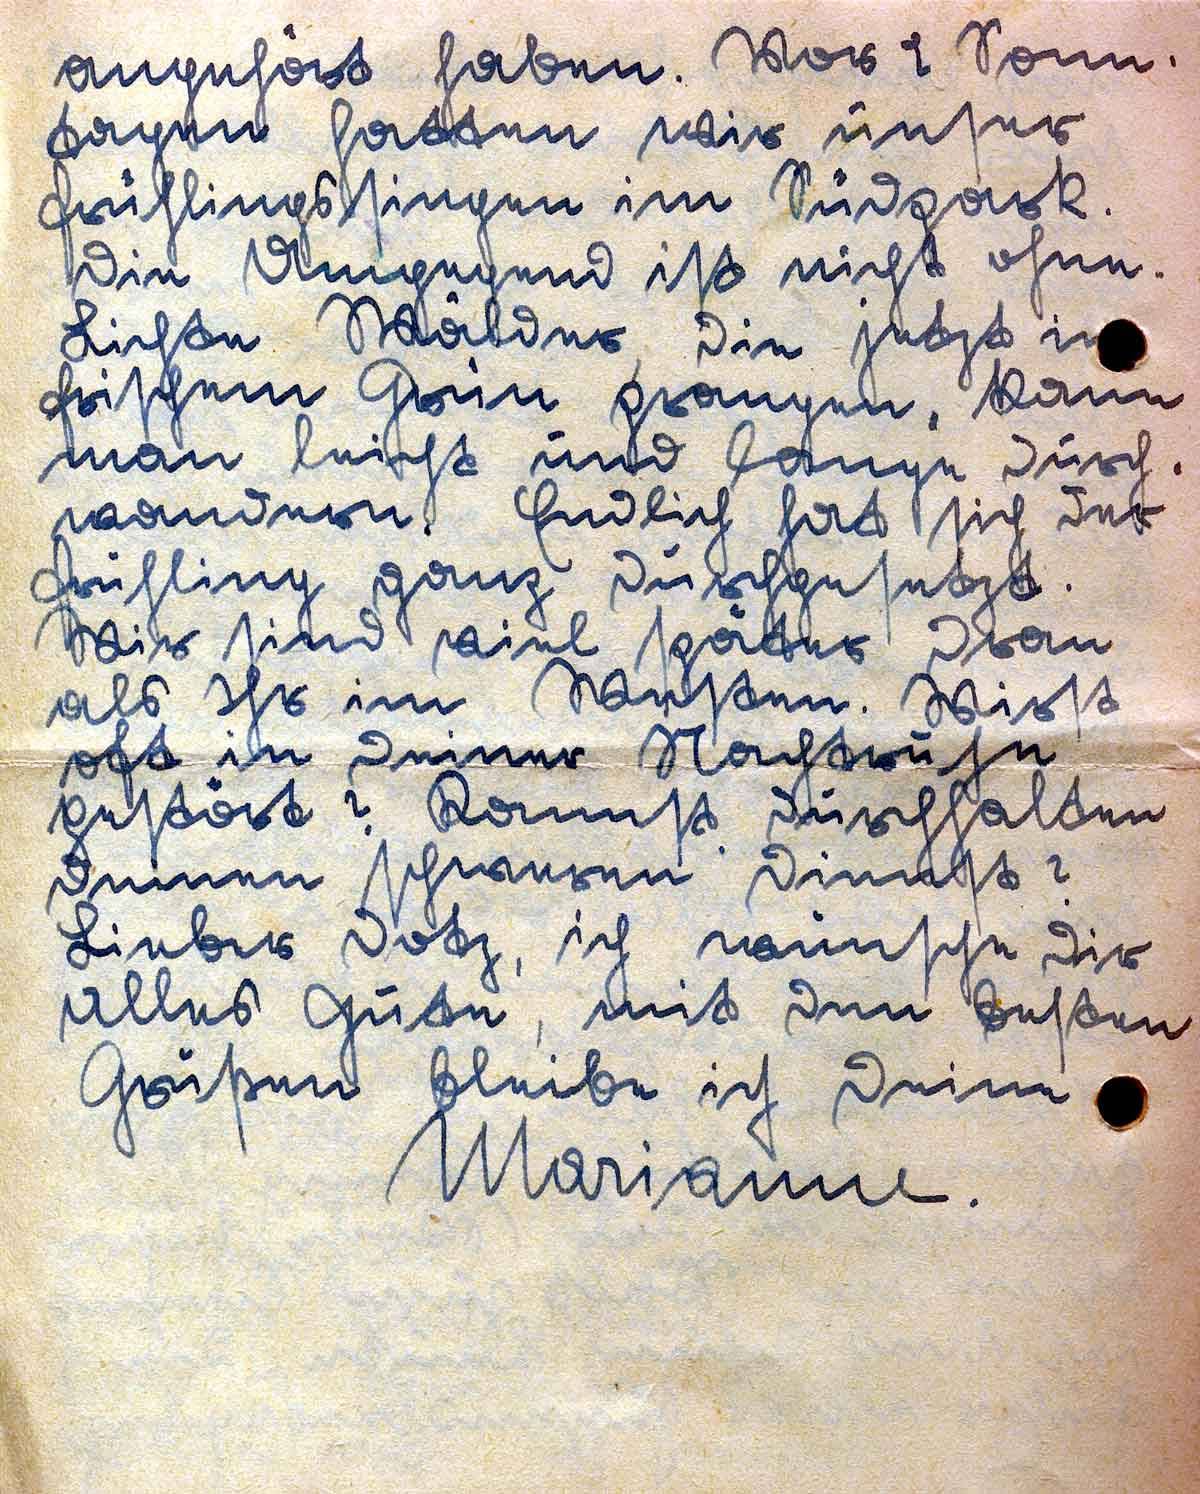 angehört haben. Vor 2 Sonn-
tagen hatten wir unser
Frühlingssingen im Südpark.
Die Umgegend ist nicht ohne.
Lichte Wälder, die jetzt in
frischem Grün prangen, kann
man leicht und lange durch-
wandern. Endlich hat sich der
Frühling ganz durchgesetzt.
Wir sind viel später dran
als Ihr im Westen. Wirst
oft in Deiner Nachtruhe
gestört? Kannst durchhalten
Deinen schweren Dienst?
Lieber Dotz, ich wünsche Dir
alles Gute, mit den besten
Grüßen bleibe ich Deine
Marianne.